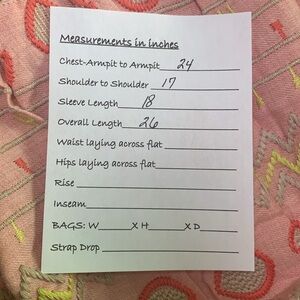 Measurements in inches
Chest-Armpit to Armpit 24
Shoulder to Shoulder 17
Sleeve Length 18
Overall Length 26
Waist laying across flat
Hips laying across flat
Rise
Inseam
BAGS: W X H X D
Strap Drop